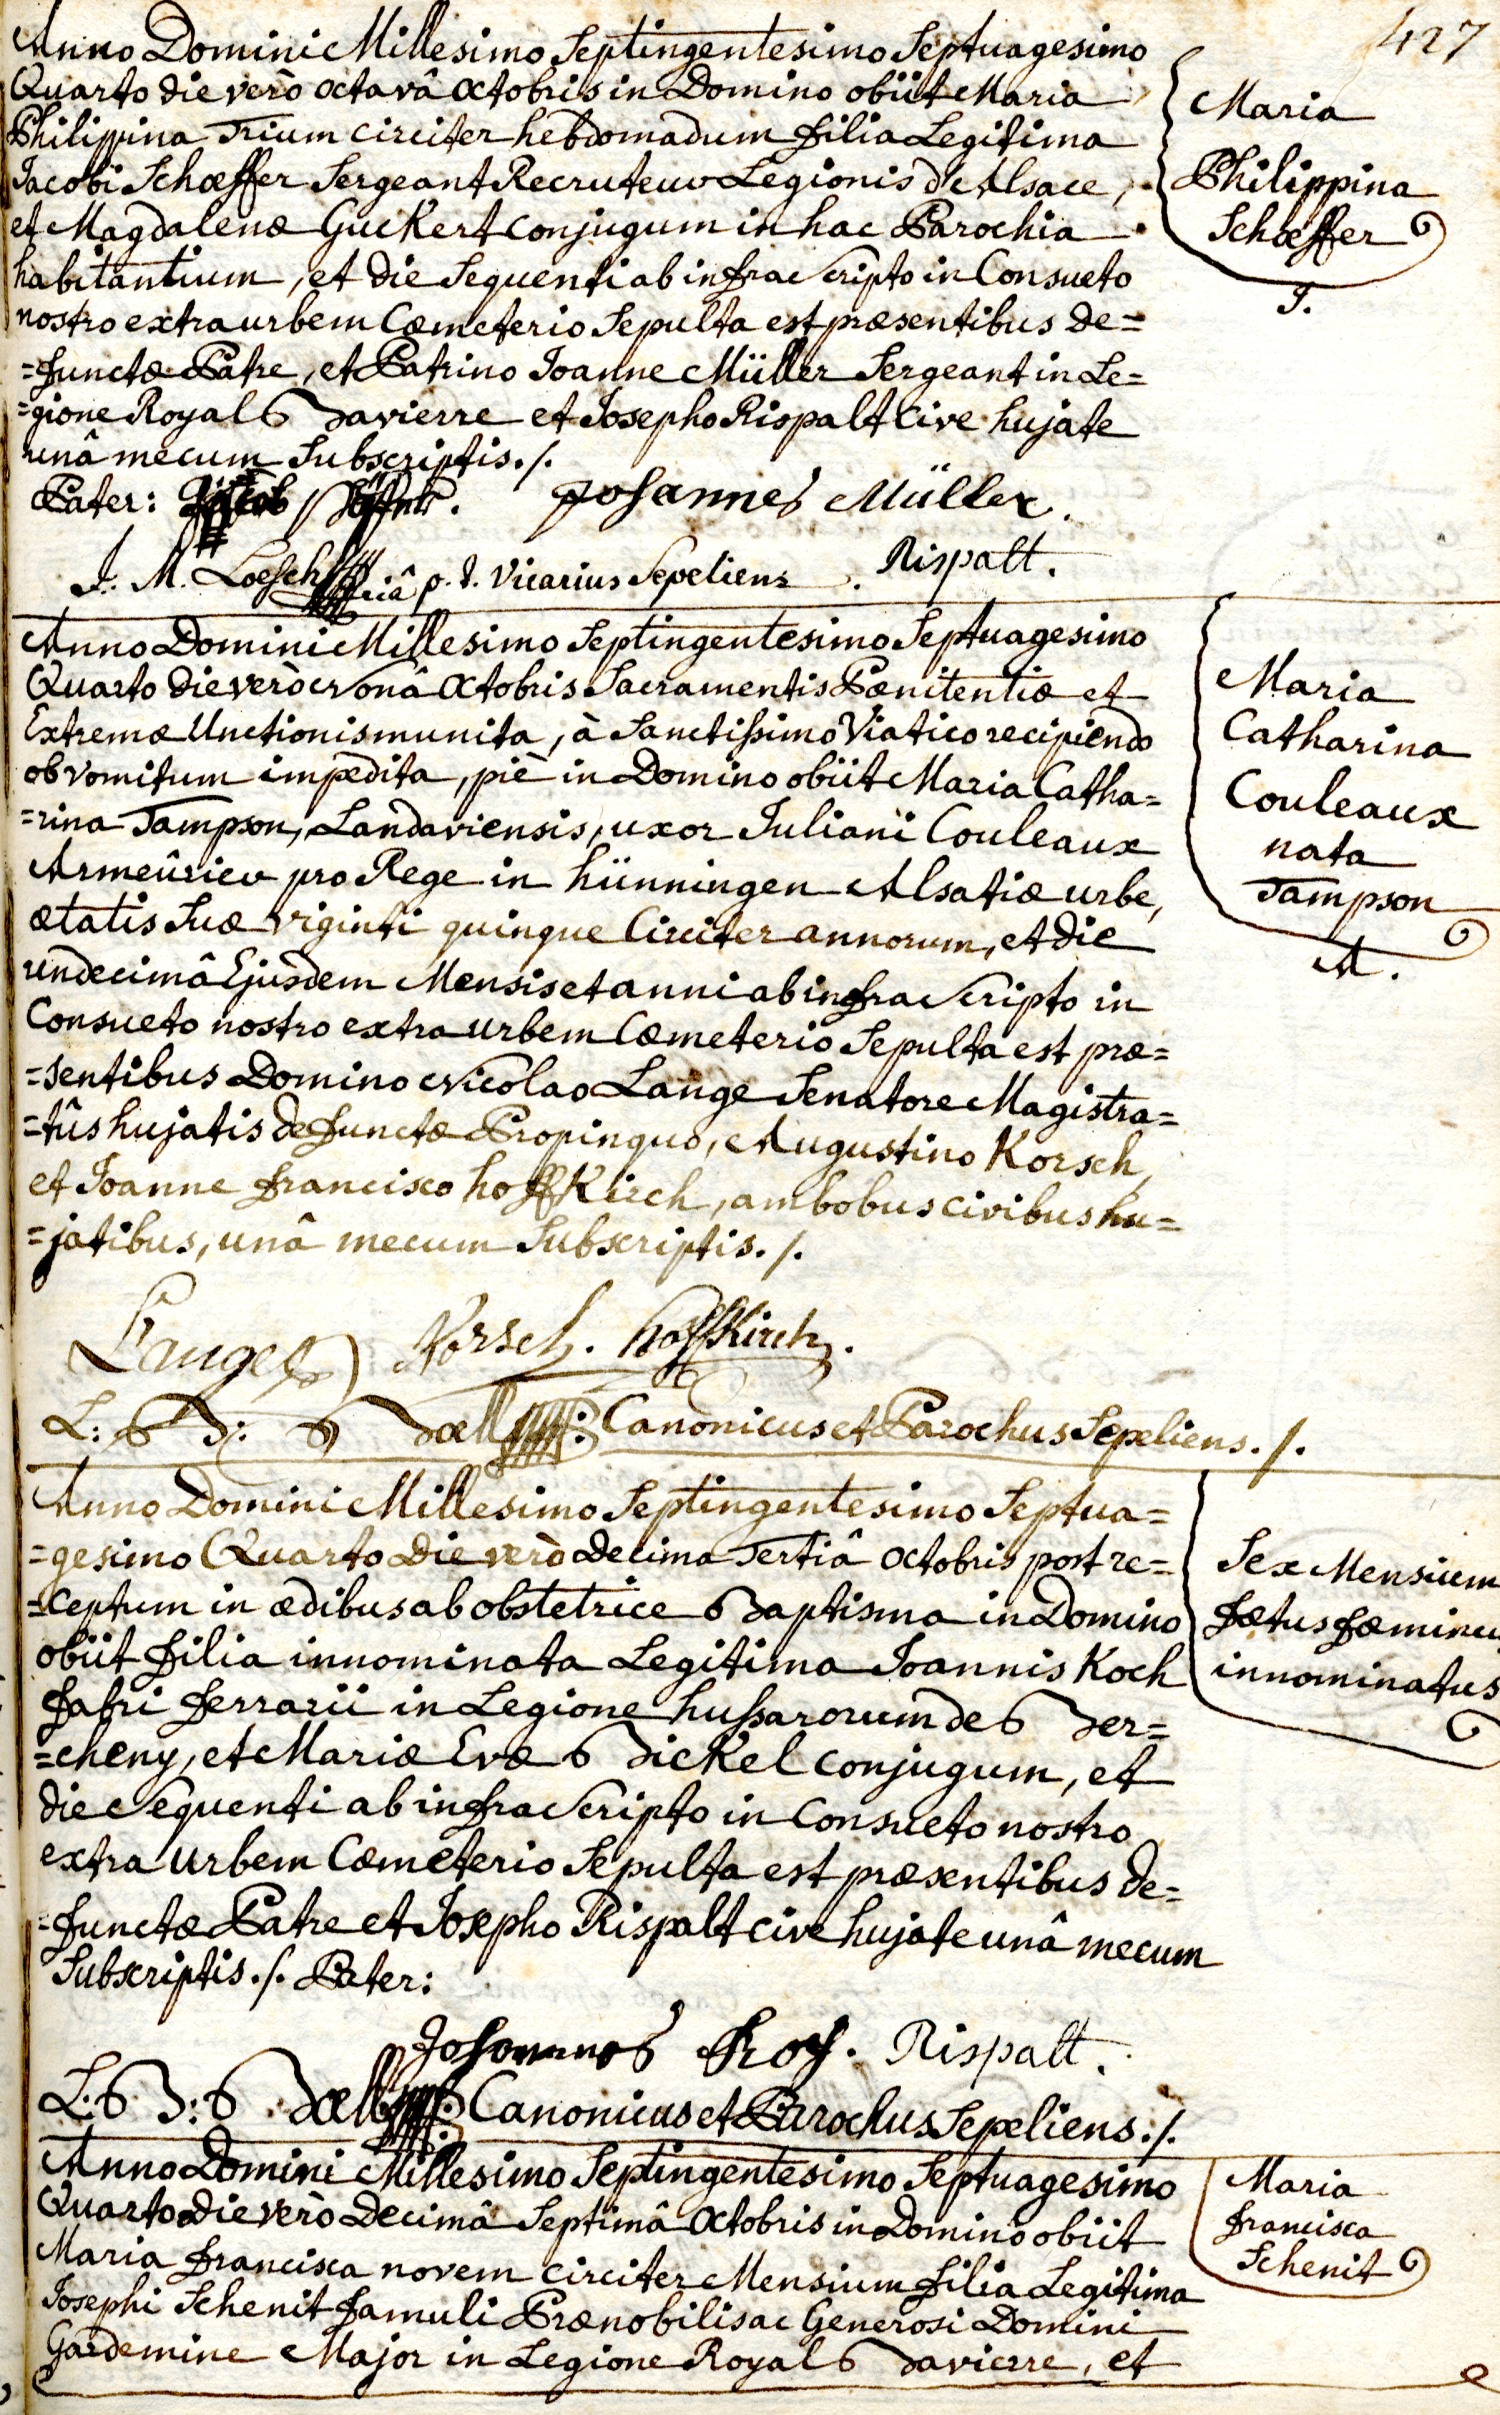 427
Anno Domini Millesimo Septingentesimo Septuagesimo
Quarto die verò octavâ octobris in Domino obiit Maria
Philippina Trium circiter hebdomadum filia Legitima
Jacobi Schæffer Sergeant Recruteur Legionis d'Alsace,
et Magdalenæ Guckert conjugum in hac Parochia
habitantium, et die Sequenti ab infra Scripto in Consueto
nostro extra urbem Cœmeterio Sepulta est præsentibus de=
=functæ Patre, et Patrino Joanne Müller Sergeant in Le=
=gione Royal Bavierre et Josepho Rispalt Cive hujate
unâ mecum Subscriptis./.
Maria
Philippina
Schæffer
J.
Pater: Jacob Schäffer. Johannes Müller.
J. M. Loesch p. t. Vicarius Sepeliens. Rispalt.
Anno Domini Millesimo Septingentesimo Septuagesimo
Quarto die verò Nonâ Octobris Sacramentis Pœnitentiæ et
Extremæ Unctionis munita, à Sanctissimo Viatico recipiendo
ob vomitum impedita, piè in Domino obiit Maria Catha=
=rina Tampson, Landaviensis, uxor Juliani Couleaux
Armeûrier pro Rege in hünningen Alsatiæ urbe,
ætatis Suæ viginti quinque Circiter annorum, et die
undecimâ Ejusdem Mensis et anni ab infra Scripto in
Consueto nostro extra urbem Cœmeterio Sepulta est præ=
=sentibus Domino Nicolao Lange Senatore Magistra=
=tûs hujatis defunctæ Propinquo, Augustino Korsch,
et Joanne francisco hoffKirch, ambobus civibus hu=
=jatibus, unâ mecum Subscriptis./.
Maria
Catharina
Couleaux
nata
Tampson
A.
Lange Korsch. hoffKirch.
L: B: Bœll Canonicus et Parochus Sepeliens./.
Anno Domini Millesimo Septingentesimo Septua=
=gesimo Quarto die verò decima Tertiâ octobris post re=
=ceptum in ædibus ab obstetrice Baptisma in Domino
obiit filia innominata Legitima Joannis Koch
fabri ferrarii in Legione hussarorum de Ber=
=cheny, et Mariæ Evæ Bickel conjugum, et
die Sequenti ab infra Scripto in Consueto nostro
extra urbem Cœmeterio Sepulta est præsentibus de=
=functæ Patre et Josepho Rispalt cive hujate unâ mecum
Subscriptis./. Pater:
Sex Mensium
fœtus fœmineus
innominatus
Johannes Koch. Rispalt.
L: B: Bœll Canonicus et Parochus Sepeliens./.
Anno Domini Millesimo Septingentesimo Septuagesimo
Quarto die verò Decimâ Septimâ Octobris in Domino obiit
Maria francisca novem circiter Mensium filia Legitima
Josephi Schenit famuli Prænobilis ac Generosi Domini
Gardemine Major in Legione Royal Bavierre, et
Maria
francisca
Schenit